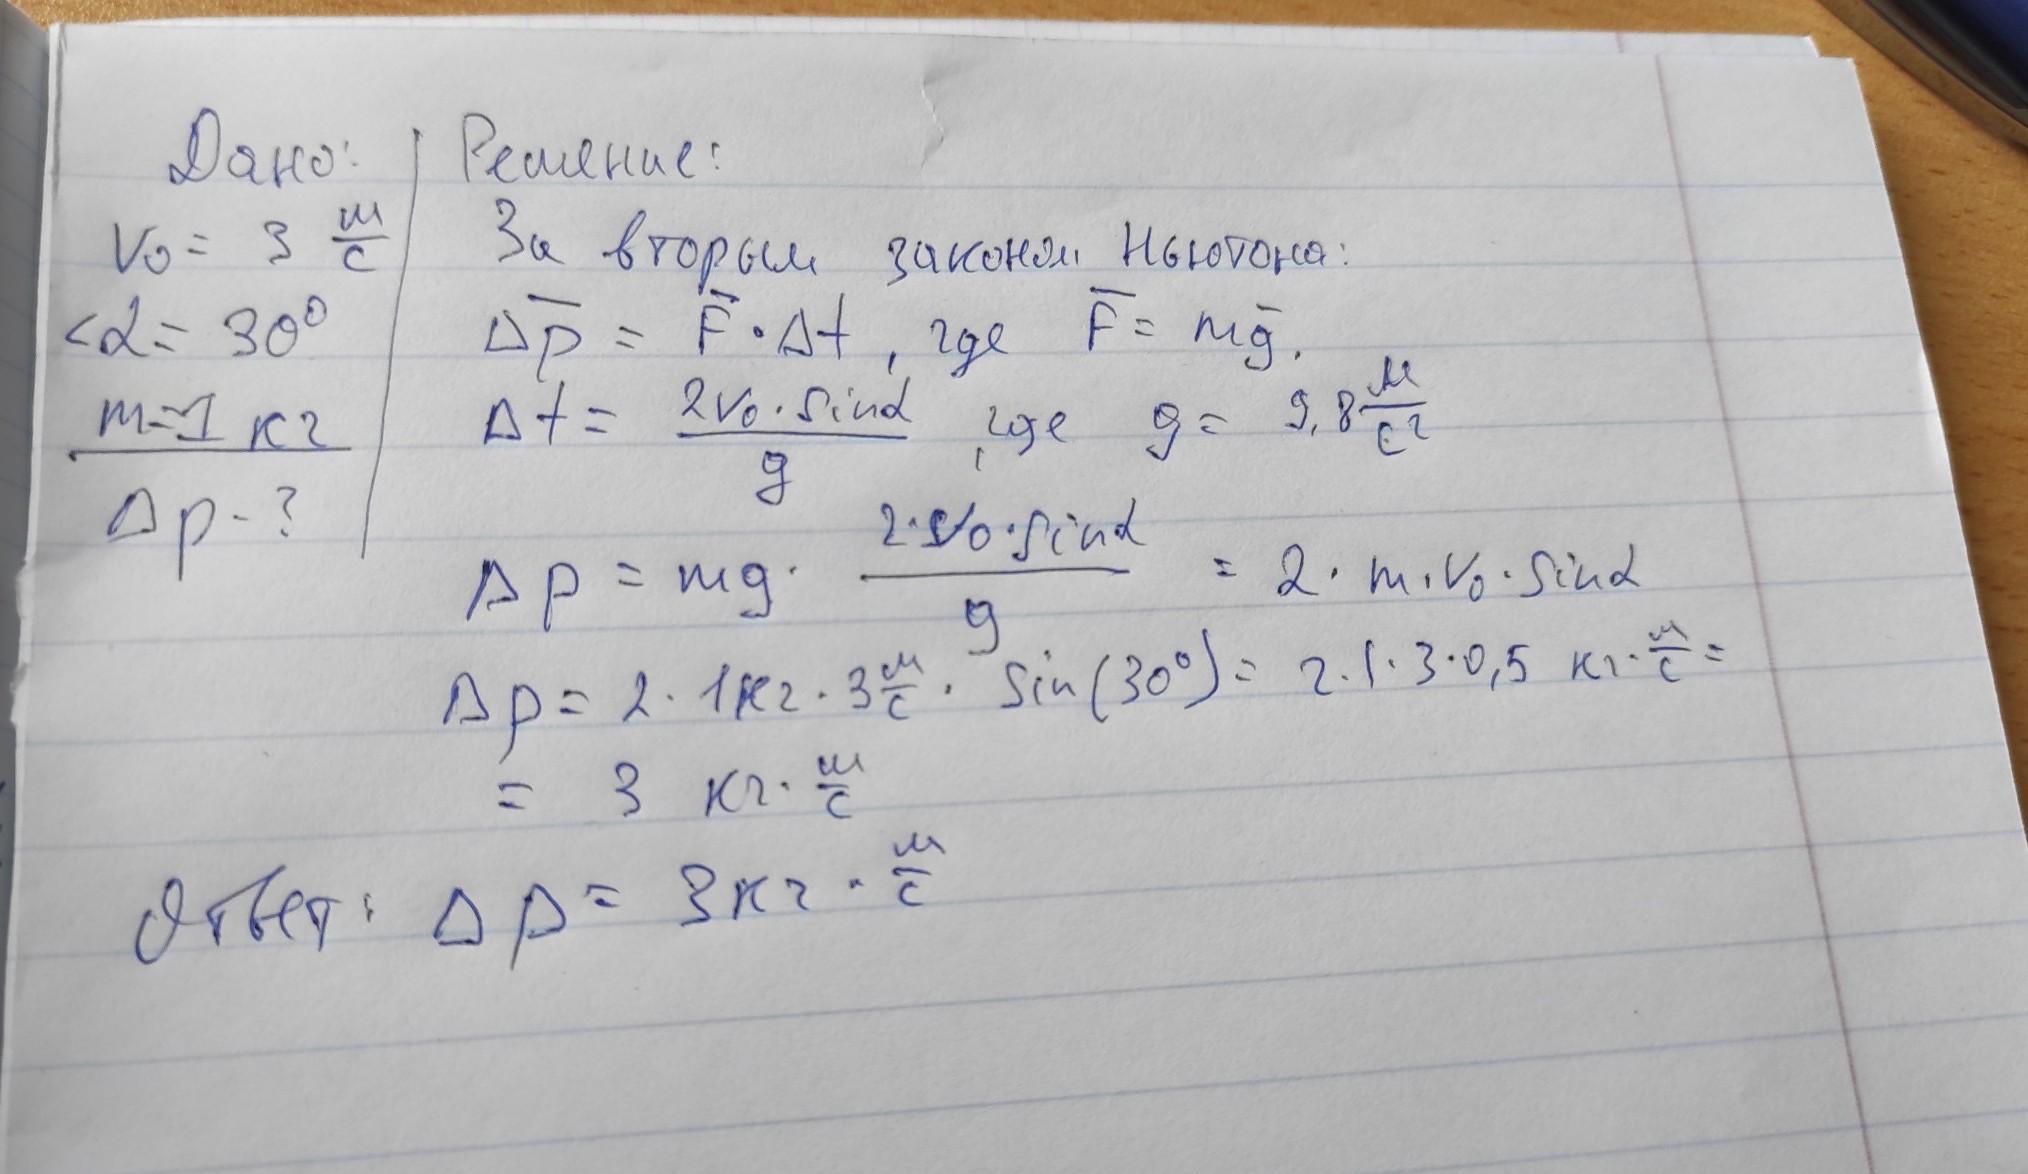 Дано:
V₀ = 3 м/с
<α = 30°
m = 1 кг
Δp - ?
Решение:
За вторым законом Ньютона:
Δp̅ = F̅ · Δt , где F̅ = mg̅.
Δt = (2V₀ · sinα)/g , где g = 9,8 м/с²
Δp = mg · (2 · V₀ · sinα)/g = 2 · m · V₀ · sinα
Δp = 2 · 1кг · 3 м/с · sin(30°) = 2 · 1 · 3 · 0,5 кг · м/с =
= 3 кг · м/с
Ответ: Δp = 3кг · м/с